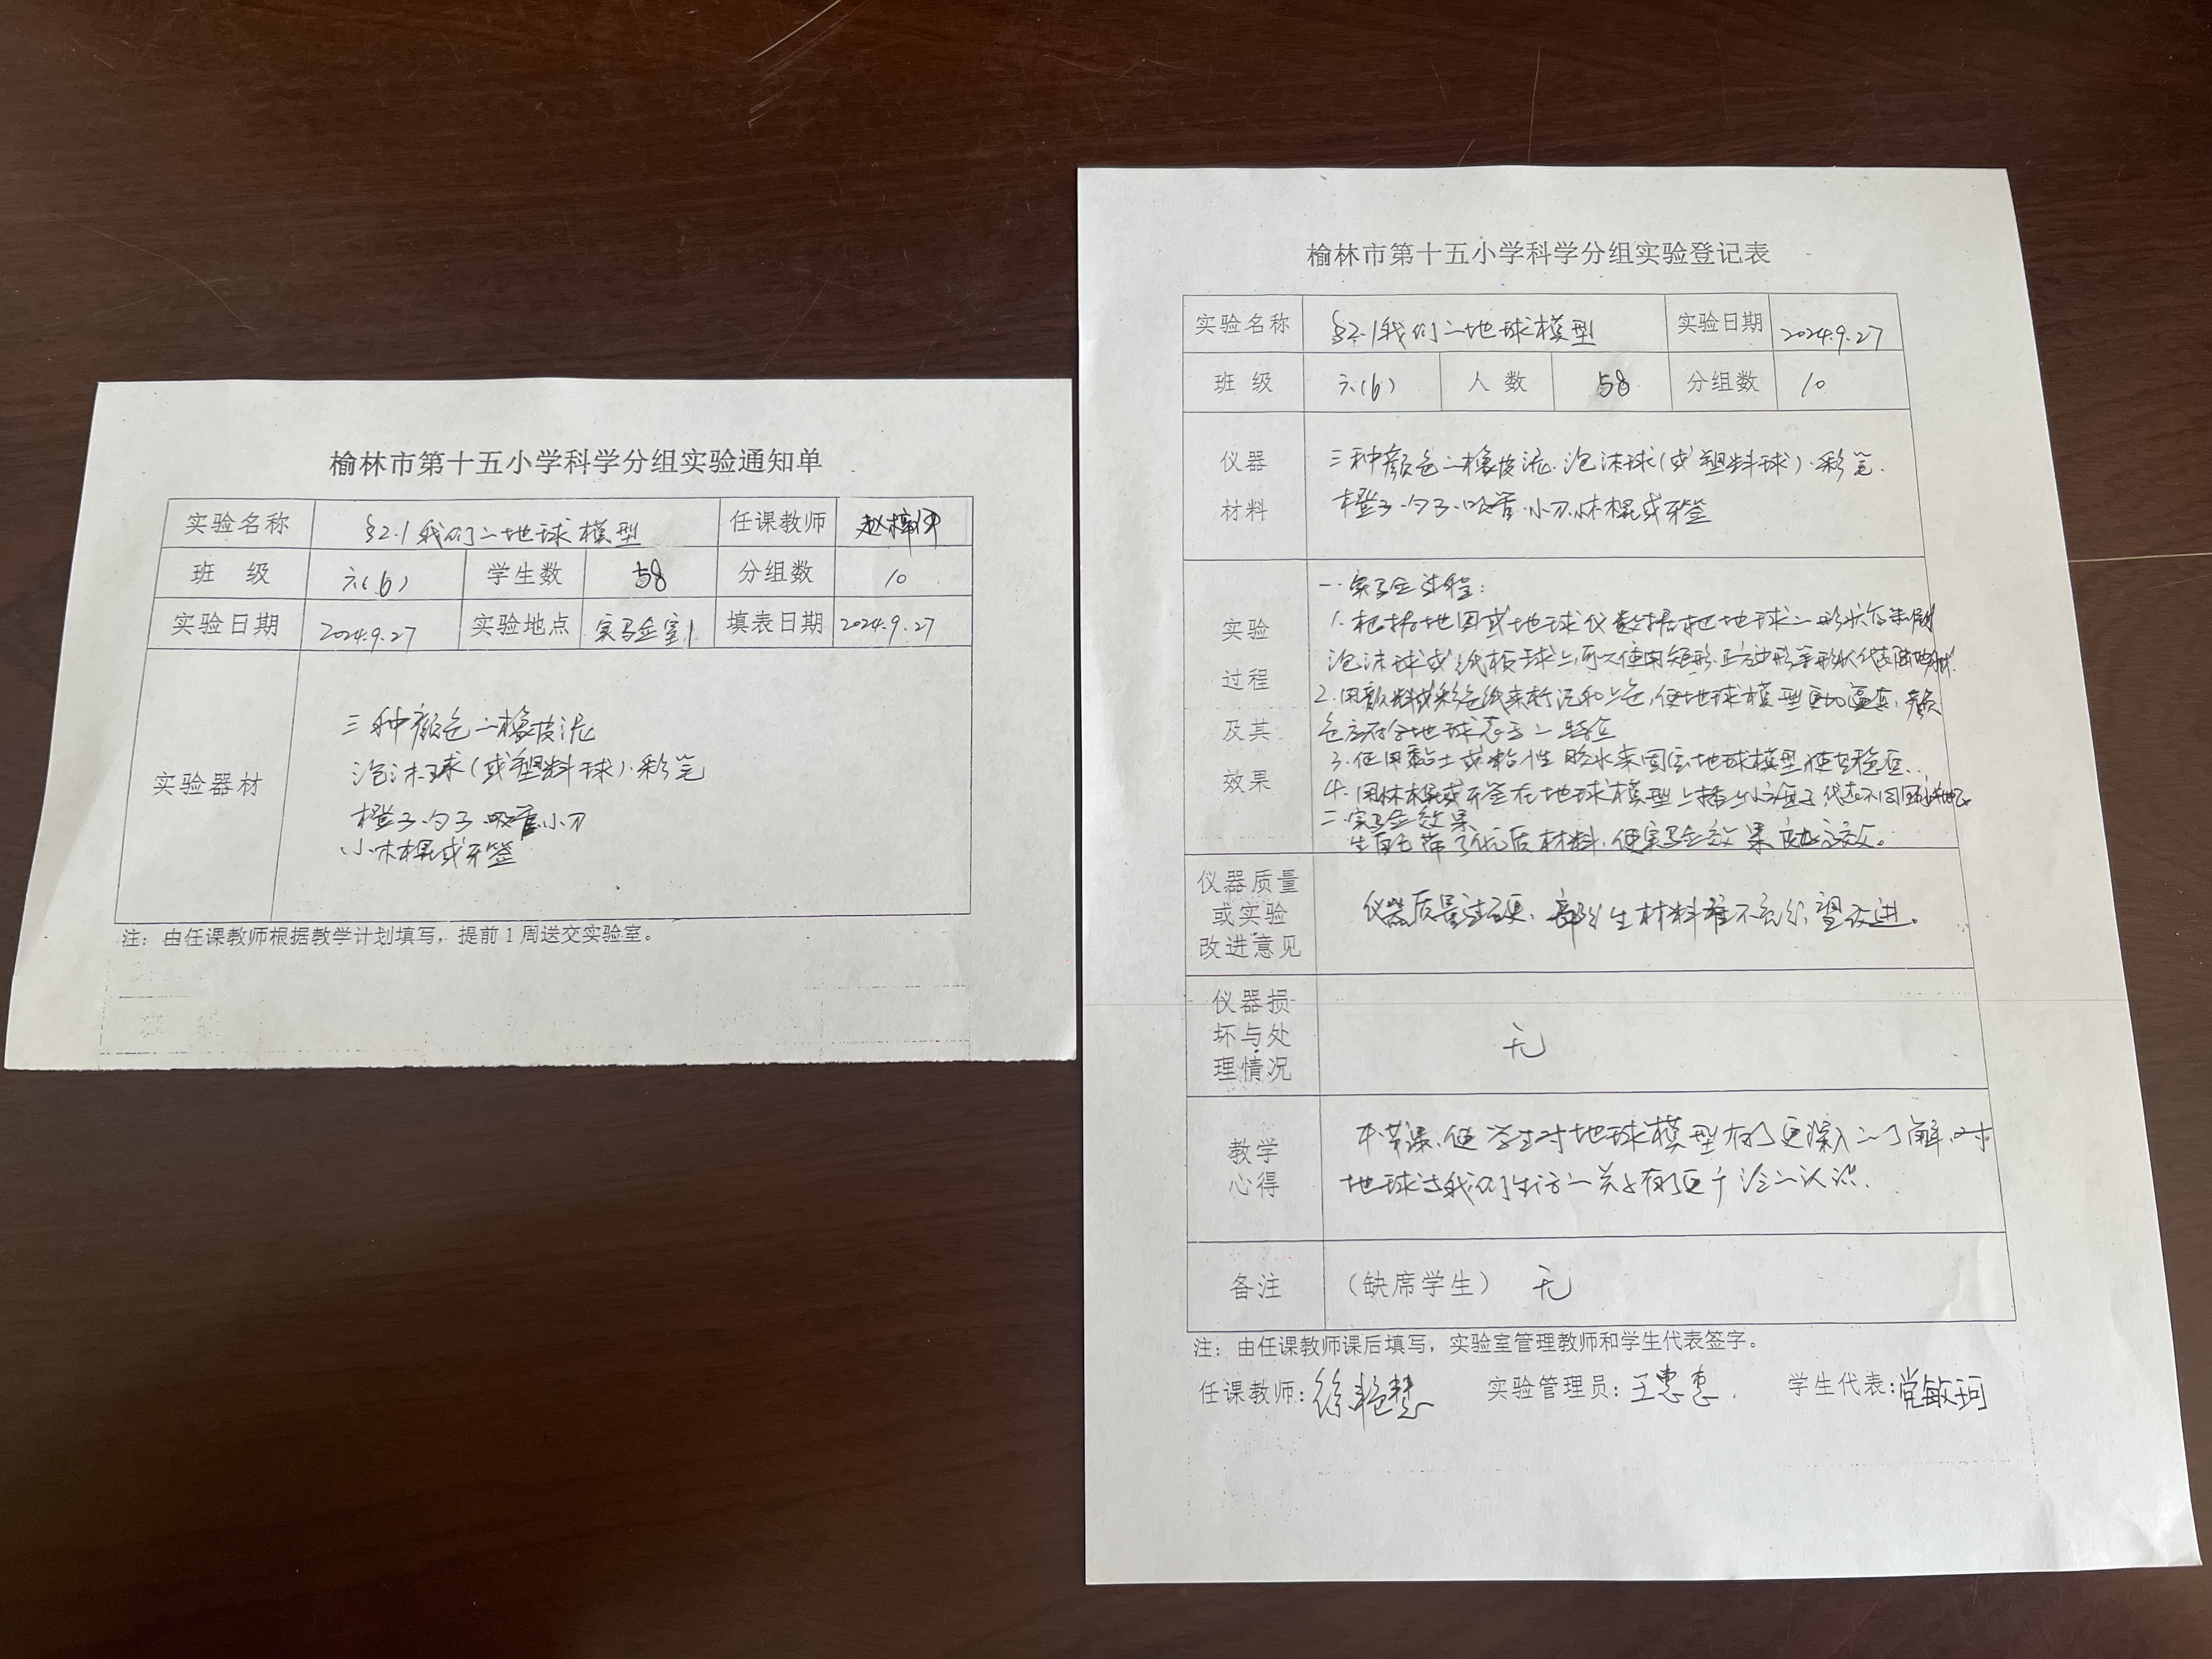 榆林市第十五小学科学分组实验通知单
实验名称 §2.1我们的地球模型 任课教师
班 级 六(6) 学生数 58 分组数 10
实验日期 2024.9.27 实验地点 实验室1 填表日期 2024.9.27
实验器材
三种颜色的橡皮泥
泡沫球(或塑料球).彩笔
橙子.勺子.吸管.小刀
小木棍或牙签
注：由任课教师根据教学计划填写，提前1周送交实验室。
榆林市第十五小学科学分组实验登记表
实验名称 §2.1我们的地球模型 实验日期 2024.9.27
班 级 六(6) 人 数 58 分组数 10
仪器材料
三种颜色的橡皮泥.泡沫球(或塑料球).彩笔.
橙子.勺子.吸管.小刀.小木棍或牙签
实验过程及其效果
一.实验过程:
1.根据地图或地球仪数据把地球的形状
泡沫球或纸板球上,可以使用矩形.正方形等形状代表陆地
2.用颜料或彩色纸来 和上色,使地球模型更加逼真,颜
色应符合地球表面的特征
3.使用黏土或粘性胶水来固定地球模型使其稳固.
4.用木棍或牙签在地球模型上插上小 子,代表不同
二.实验效果
生自己带了 材料,使实验效果 。
仪器质量或实验改进意见
仪器质量 ,部分生材料准备不充分,望改进。
仪器损坏与处理情况
无
教学心得
本节课,使学生对地球模型有了更深入的了解,对
地球与我们生活的关系有了更 的认识.
备注 （缺席学生） 无
注：由任课教师课后填写，实验室管理教师和学生代表签字。
任课教师:徐艳慧 实验管理员:王惠惠. 学生代表:党敏珂